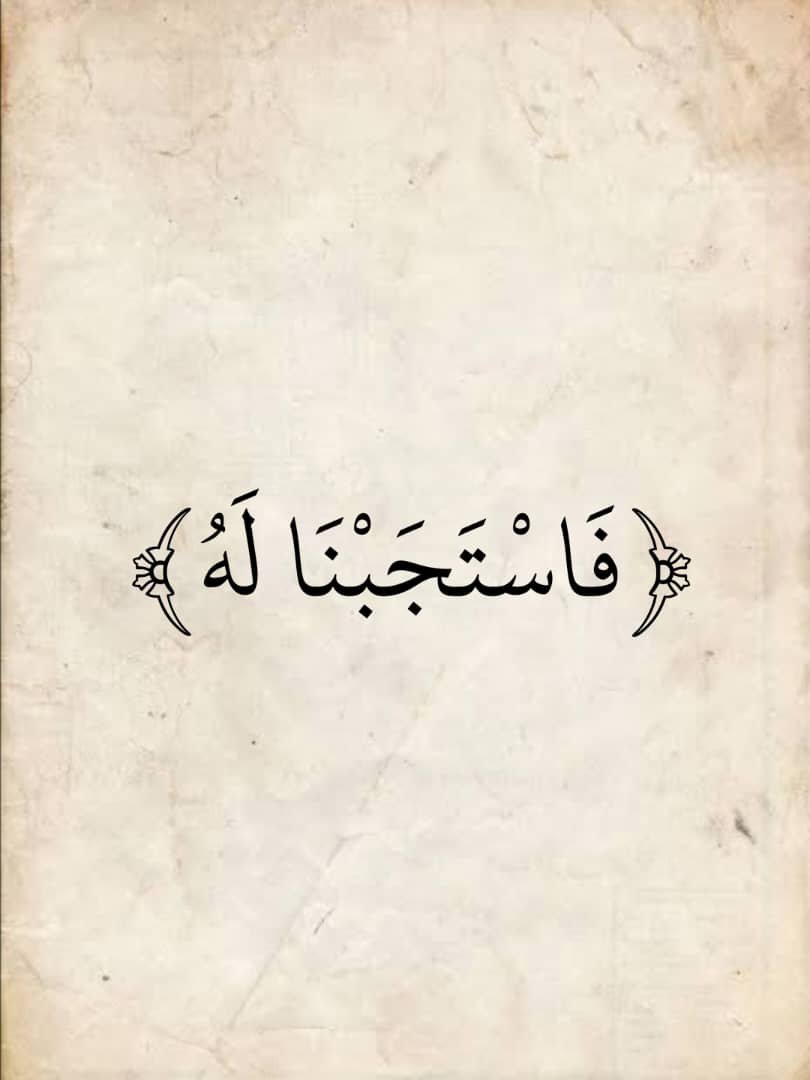 ﴿فَاسْتَجَبْنَا لَهُ﴾